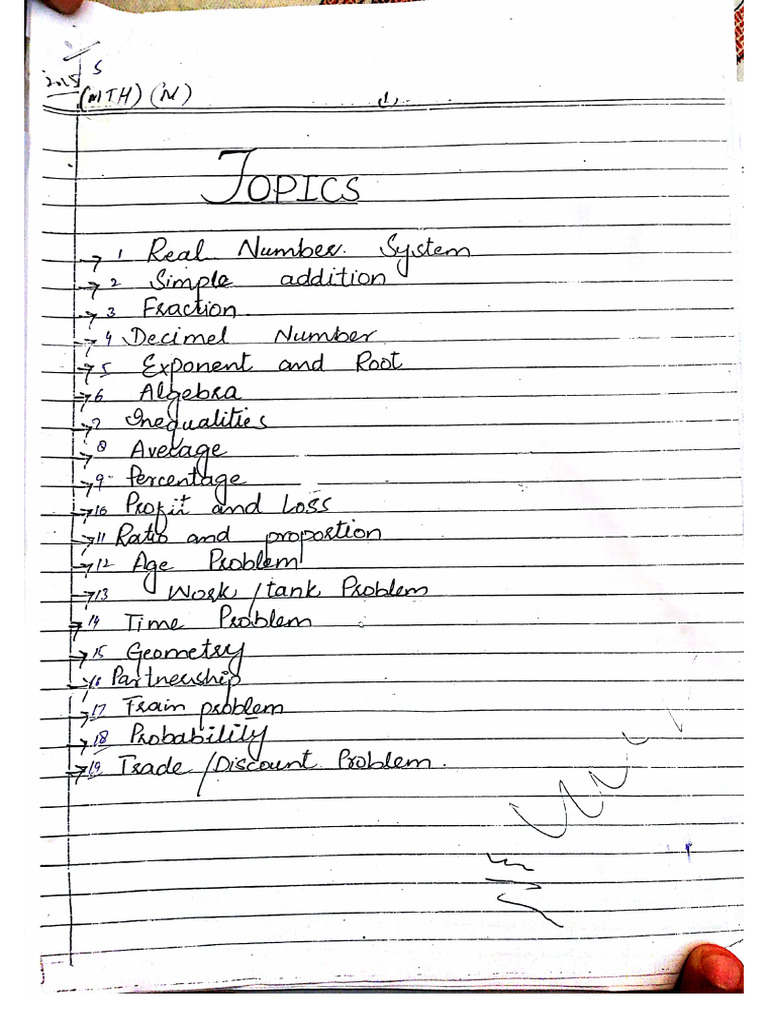 2015 S
(MTH) (N)
TOPICS
→ 1 Real Number System
→ 2 Simple addition
→ 3 Fraction
→ 4 Decimel Number
→ 5 Exponent and Root
→ 6 Algebra
→ 7 Inequalities
→ 8 Average
→ 9 Percentage
→ 10 Profit and Loss
→ 11 Ratio and proportion
→ 12 Age Problem
→ 13 Work / tank Problem
→ 14 Time Problem
→ 15 Geometry
→ 16 Partnership
→ 17 Train problem
→ 18 Probability
→ 19 Trade / Discount Problem.